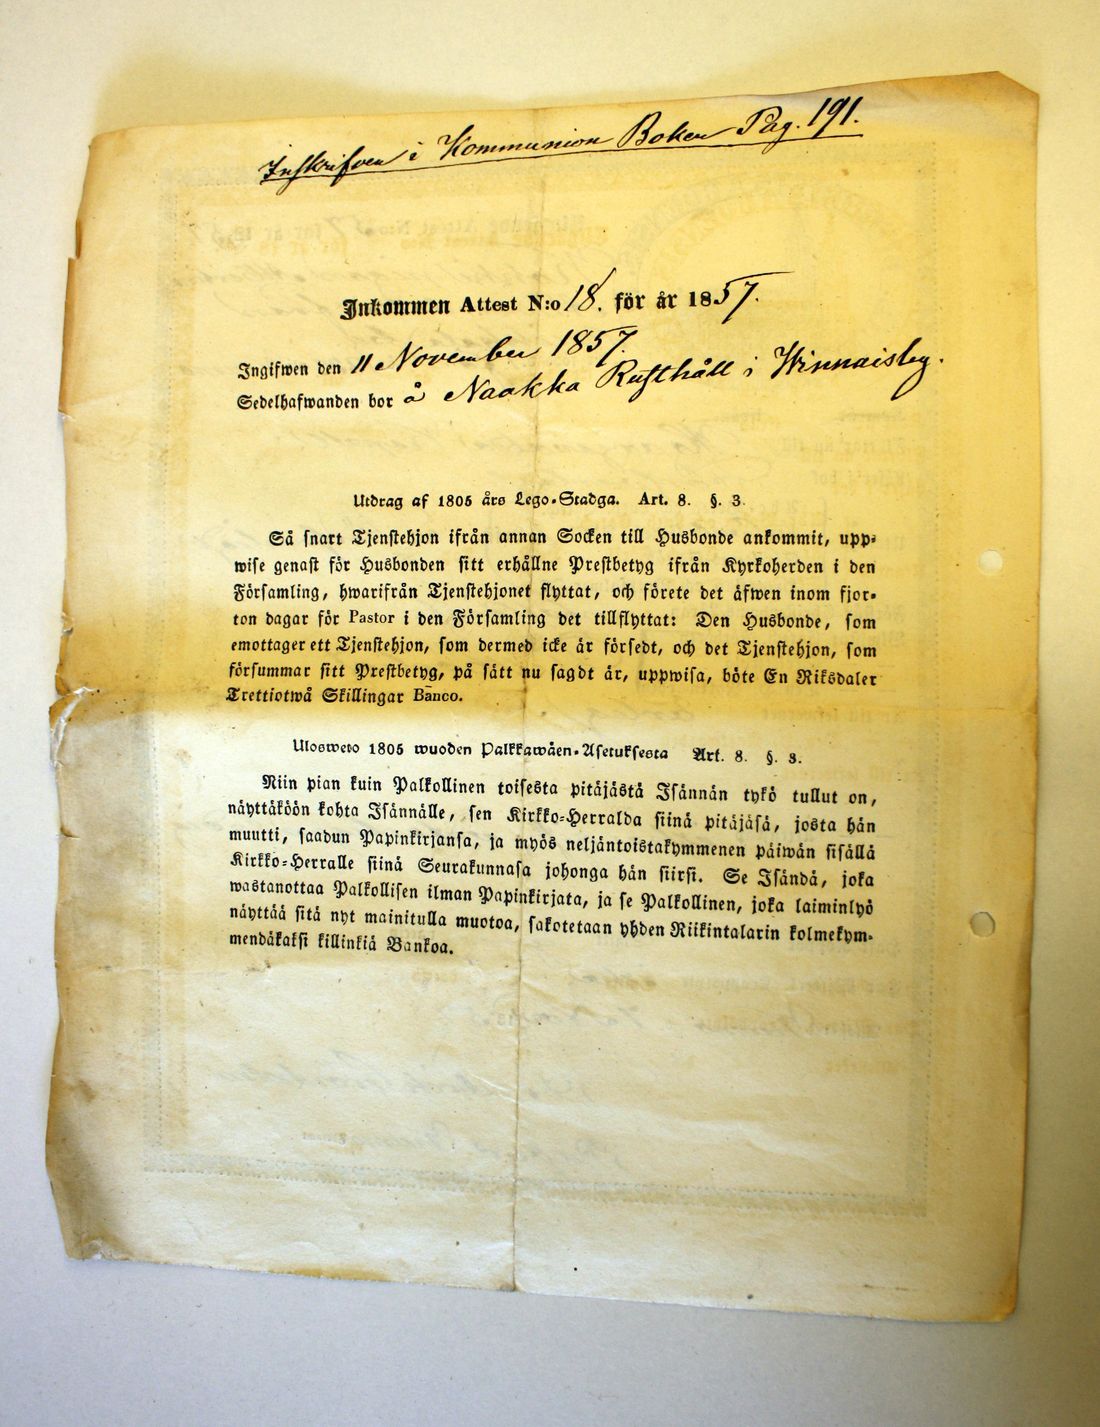 Inskrifven i Kommunion Boken Pag. 191.
Inkommen Attest N:o 18. för år 1857.
Ingifwen den 11 November 1857.
Sedelhafwanden bor å Naakka Rusthåll i Winnaisby.
Utdrag af 1805 års Lego-Stadga. Art. 8. §. 3.
Så snart Tjenstehjon ifrån annan Socken till Husbonde ankommit, upp-
wise genast för Husbonden sitt erhållne Prestbetyg ifrån Kyrkoherden i den
Församling, hwarifrån Tjenstehjonet flyttat, och förete det äfwen inom fjor-
ton dagar för Pastor i den Församling det tillflyttat: Den Husbonde, som
emottager ett Tjenstehjon, som dermed icke är försedt, och det Tjenstehjon, som
försummar sitt Prestbetyg, på sätt nu sagdt är, uppwisa, böte En Riksdaler
Trettiotwå Skillingar Banco.
Ulosweto 1805 wuoden Palkkawäen-Asetuksesta Art. 8. §. 3.
Niin pian kuin Palkollinen toisesta pitäjästä Isännän tykö tullut on,
näyttäköön kohta Isännälle, sen Kirkko-Herralda siinä pitäjäsä, josta hän
muutti, saadun Papinkirjansa, ja myös neljäntoistakymmenen päiwän sisällä
Kirkko-Herralle siinä Seurakunnasa johonga hän siirsi. Se Isändä, joka
wastanottaa Palkollisen ilman Papinkirjata, ja se Palkollinen, joka laiminlyö
näyttää sitä nyt mainitulla muotoa, sakotetaan yhden Riikintalarin kolmekym-
mendäkaksi killinkiä Bankoa.